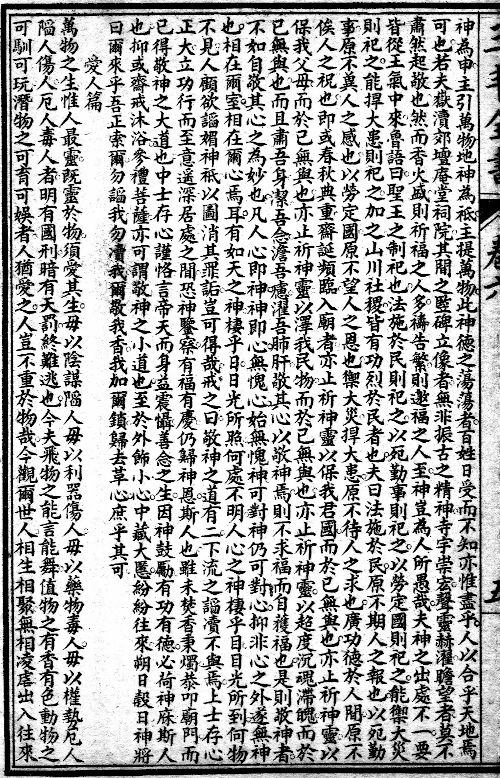 神為申主引萬物地神為祗主提萬物此神德之蕩蕩者百姓日受而不知亦惟盡乎人以合乎天地焉
可也若夫嶽瀆郊壇廟堂祠院其間之豎碑立像者無非振古之精神寺宇崇宏聲靈赫濯瞻望者莫不
肅然起敬也然而香火盛則祈福之人多禱告繁則邀福之人至神豈為人所愚哉夫神之出處不一要
皆從王氣中來魯語曰聖王之制祀也法施於民則祀之以宛勤事則祀之以勞定國則祀之能禦大災
則祀之能捍大患則祀之加之山川社稷皆有功烈於民者也夫曰法施於民原不期人之報也以宛勤
事原不冀人之感也以勞定國原不望人之恩也禦大災捍大患原不待人之求也廣功德於人間原不
俟人之祝也即或春秋典重齋誕頻臨入廟者亦止祈神靈以保我君國而於已無與也亦止祈神靈以
保我父母而於已無與也亦止祈神靈以澤我民物而於已無與也亦止祈神靈以超度沉魂滯魄而於
已無與也而且肅吾身潔吾念澹吾慮濯吾肺肝敬其心以敬神焉則不求福而自獲福也是則敬神者
不如自敬其心之為妙也凡人心即神神即心無愧心始無愧神可對神仍可對心抑非心之外遂無神
也相在爾室相在爾心焉耳有如天之神棲乎日日光所照何處不明人心之神棲乎目目光所到何物
不見人顧欲謟媚神祗以圖消其罪詬豈可得哉戒之曰敬神之道有二下流之謟瀆不與焉上士存心
正大立功行而至意遥深居處之間恐神鑒察有福有慶仍歸神恩斯人也雖未焚香秉燭恭叩廟門而
已得敬神之大道也中士存心謹恪言帝天而身益震懾善念之生因神鼓勵有功有德必荷神庥斯人
也抑或齋戒沐浴參禮菩薩亦可謂敬神之小道也至於外飾小心中藏大慝紛紛往來朔日穀日神將
曰爾來乎吾正索爾勿謟我勿瀆我爾敬我香我加爾鎖歸去革心庶乎其可
愛人篇
萬物之生惟人最靈既靈於物須愛其生毋以陰謀陷人毋以利器傷人毋以藥物毒人毋以權勢厄人
陷人傷人厄人毒人者明有國刑暗有天罰終難逃也今夫飛物之能言能舞值物之有香有色動物之
可馴可玩潛物之可育可娛者人猶愛之人豈不重於物哉今觀爾世人相生相聚無相凌虐出入往來